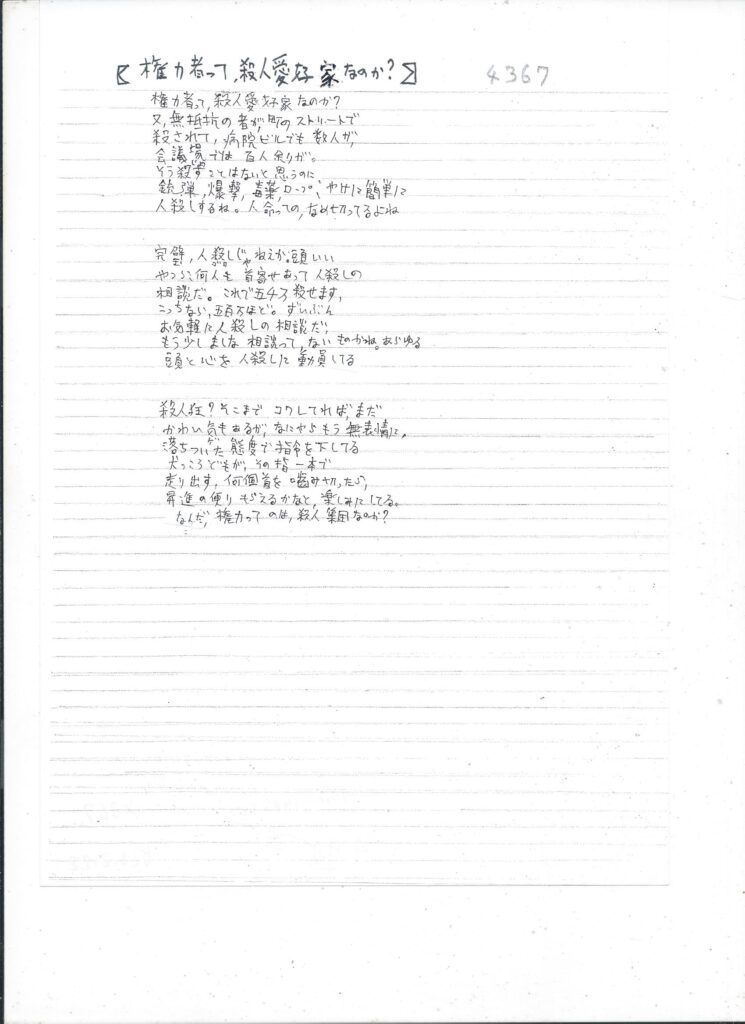 【権力者って、殺人愛好家なのか?】 4367
権力者って、殺人愛好家なのか?
又、無抵抗の者が、町のストリートで
殺されて、病院ビルでも数人が、
会議場では百人余りが。
そう殺すことはないと思うのに
銃弾、爆撃、毒薬、ロープ、やけに簡単に
人殺しするね。人命っての、なめ切ってるよね
完璧、人殺しじゃねえか。頭いい
やつらが何人も首寄せあって人殺しの
相談だ。これで五千人殺せます、
こっちなら、五百万ほど。ずいぶん
お気軽に人殺しの相談だ。
もう少しましな相談って、ないものかね。あらゆる
頭と心を人殺しに動員してる
殺人狂?そこまでコワしてれば、まだ
かわい気もあるが、なにやらもう無表情に、
落ちついだ態度で指令を下してる
犬っころどもが、その指一本で
走り出す、何個首を噛み切ったら、
昇進の便りもらえるかなと、楽しみにしてる。
なんだ、権力ってのは、殺人集団なのか?